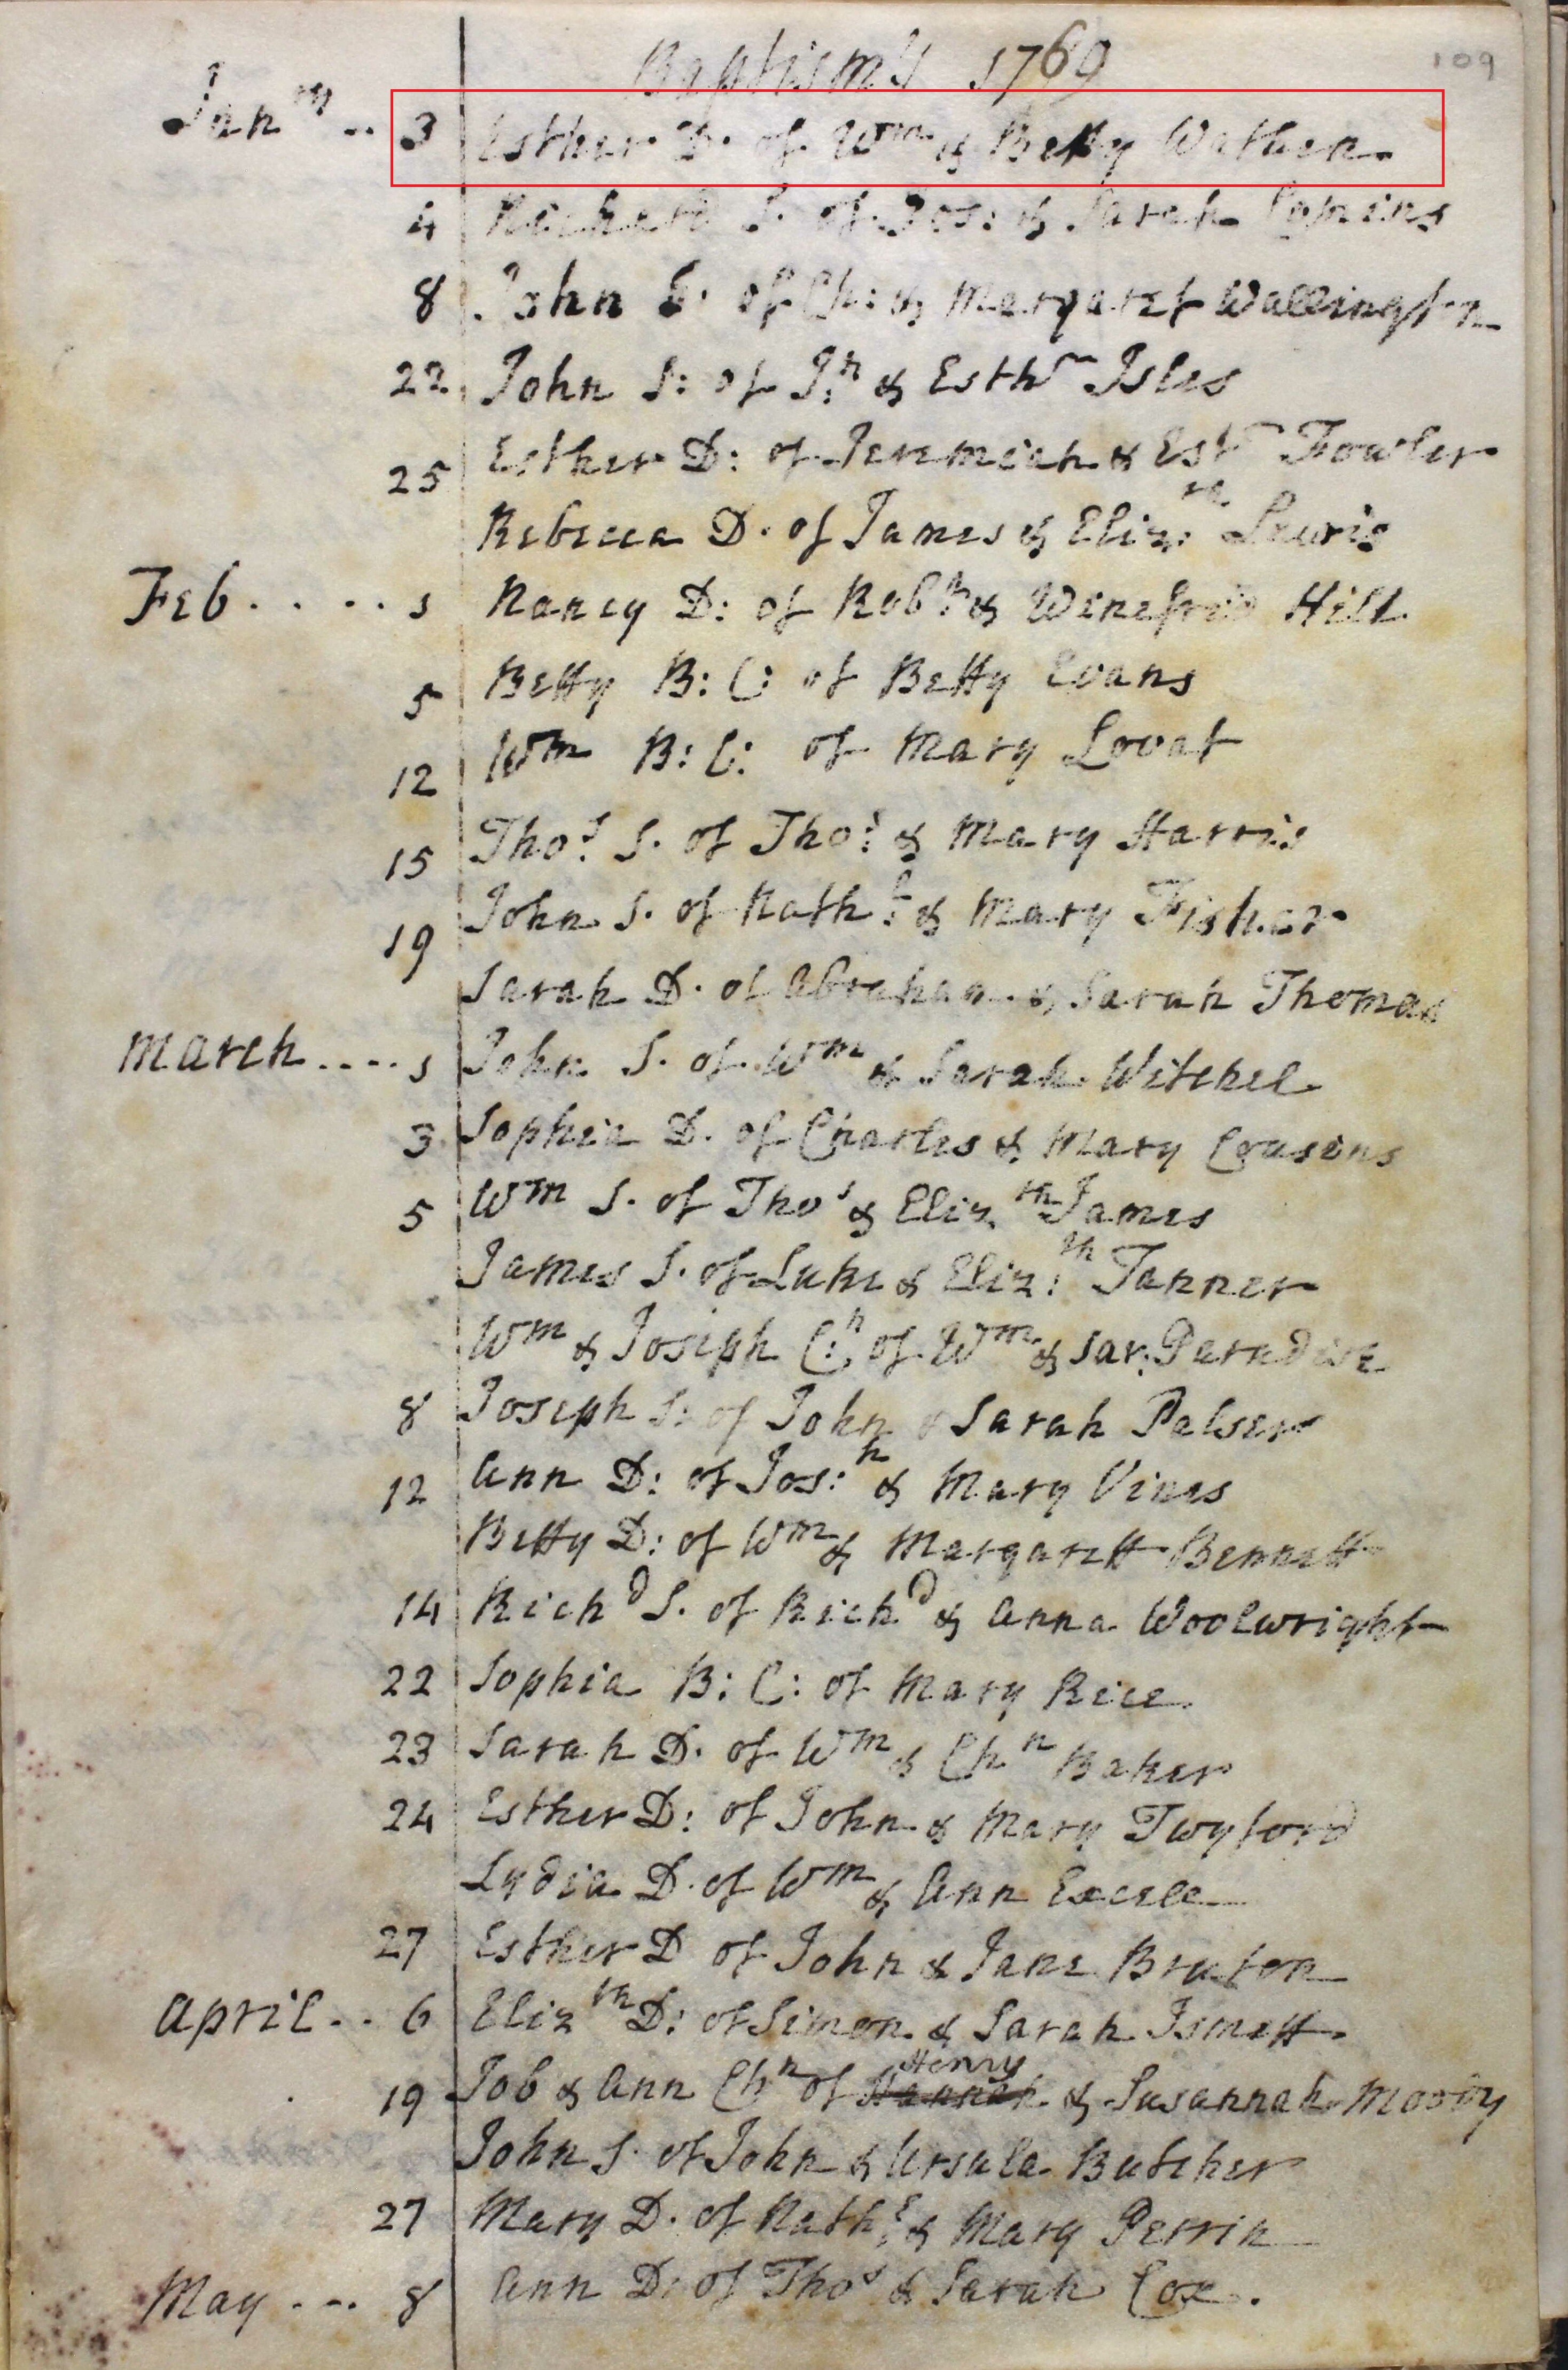 Baptism's 1769
109
Janry .. 3 Esther D. of Wm & Betty Wathen
4 Richard S. of Jos: & Sarah
8 John S. of Ch: & Margaret Wallington
22 John S: of Jn & Esthr Isles
25 Esther D: of Jeremiah & Estr Fowler
Rebecca D. of James & Eliz:th Lewis
Feb. . . . 1 Nancy D: of Robt & Winefrid Hill
5 Betty B: C: of Betty Evans
12 Wm B: C: of Mary Lovat
15 Thos S. of Thos & Mary Harris
19 John S. of Nathl & Mary Fisher
Sarah D. of Abraham & Sarah Thomas
March .... 1 John S. of Wm & Sarah Witchel
3 Sophia D. of Charles & Mary Cousins
5 Wm S. of Thos & Eliz.th James
James S. of Luke & Eliz:th Tanner
Wm & Joseph C:n of Wm & Sar: Paradise
8 Joseph S: of John & Sarah Palser
12 Ann D: of Jos:h & Mary Vines
Betty D: of Wm & Margarett Bennett
14 Richd S. of Richd & Anna Woolwright
22 Sophia B: C: of Mary Rice
23 Sarah D. of Wm & Chn Baker
24 Esther D: of John & Mary Twyford
Lydia D. of Wm & Ann Excell
27 Esther D of John & Jane Bruton
April .. 6 Elizth D: of Simon & Sarah Ismett
Henry
19 Job & Ann Chn of Hannah & Susannah Moody
John S. of John & Ursula Butcher
27 Mary D. of Nathl & Mary Perrin
May ... 8 Ann D: of Thos & Sarah Cox.